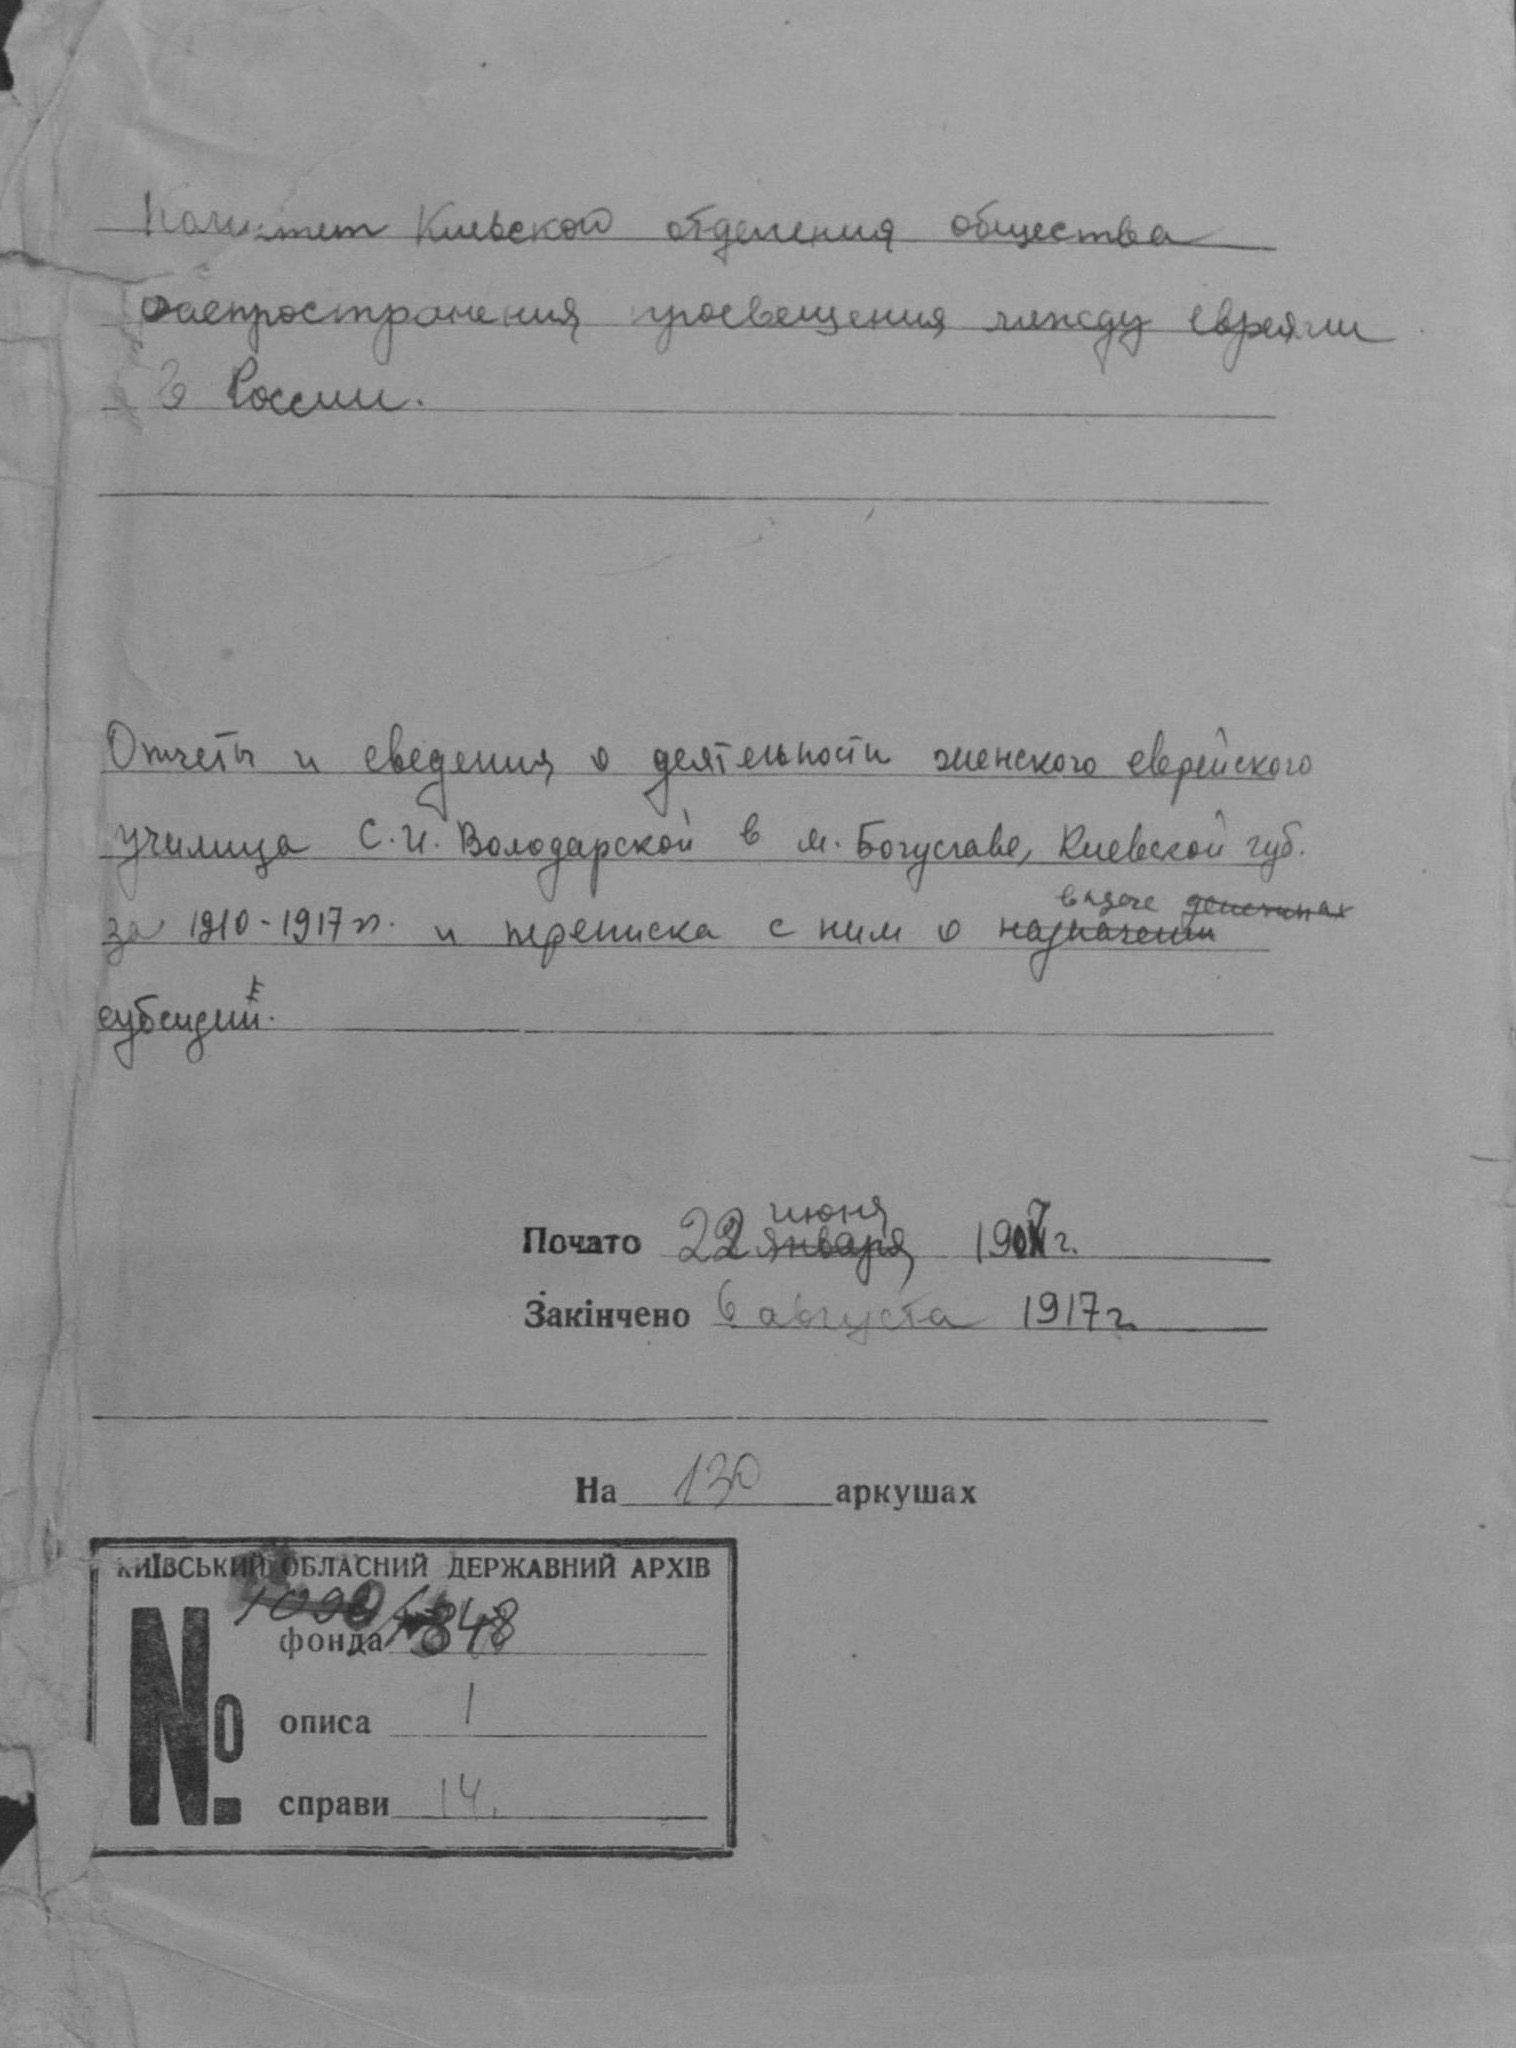 Комитет Киевского отделения общества
распространения просвещения между евреями
в России.
Отчеты и сведения о деятельности женского еврейского
училища С.И. Володарской в м. Богуславе, Киевской губ.
выдаче денежных
за 1910-1917 гг. и переписка с ним о назначении
субсидий.
июня
Почато 22 января 1907 г.
Закінчено 6 августа 1917 г.
На 130 аркушах
КИЇВСЬКИЙ ОБЛАСНИЙ ДЕРЖАВНИЙ АРХІВ
№ фонда 848
описа 1
справи 14.